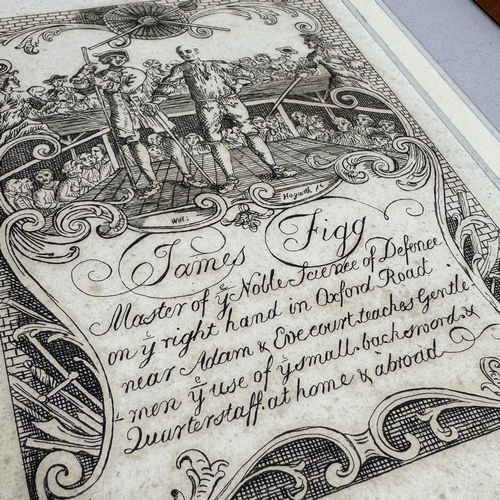 Will:
Hogarth fc
James Figg
Master of yͤ Noble Science of Defence
on yͤ right hand in Oxford Road
near Adam & Eve court teaches Gentle-
-men yͤ use of yͤ small. backsword. &
Quarterstaff. at home & abroad